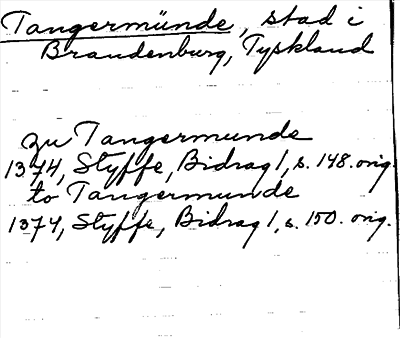 Tangermünde, stad i
Brandenburg, Tyskland
zu Tangermunde
1374, Styffe, Bidrag 1, s. 148. orig.
to Tangermunde
1374, Styffe, Bidrag 1, s. 150. orig.